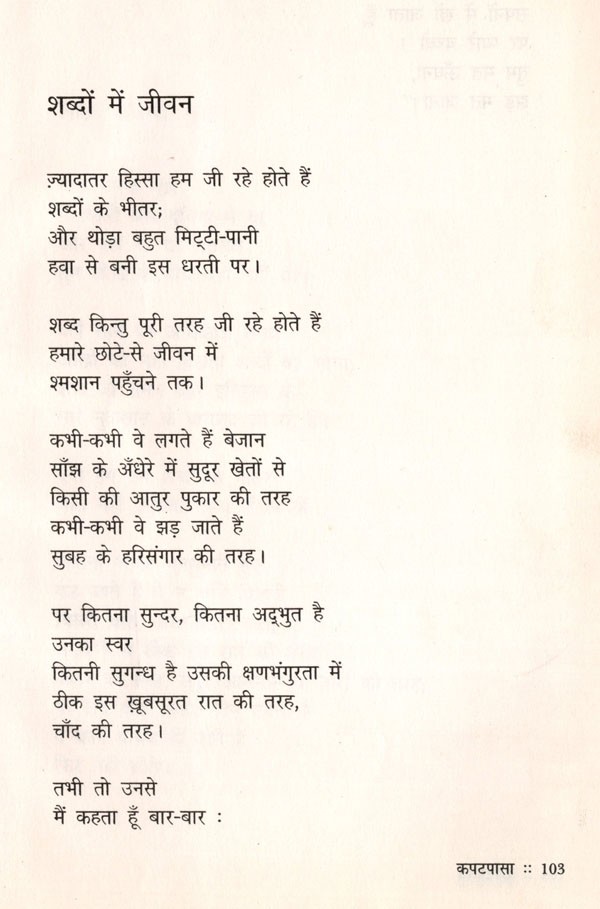 शब्दों में जीवन
ज़्यादातर हिस्सा हम जी रहे होते हैं
शब्दों के भीतर;
और थोड़ा बहुत मिट्टी-पानी
हवा से बनी इस धरती पर।
शब्द किन्तु पूरी तरह जी रहे होते हैं
हमारे छोटे-से जीवन में
श्मशान पहुँचने तक।
कभी-कभी वे लगते हैं बेजान
साँझ के अँधेरे में सुदूर खेतों से
किसी की आतुर पुकार की तरह
कभी-कभी वे झड़ जाते हैं
सुबह के हरिसंगार की तरह।
पर कितना सुन्दर, कितना अद्‌भुत है
उनका स्वर
कितनी सुगन्ध है उसकी क्षणभंगुरता में
ठीक इस ख़ूबसूरत रात की तरह,
चाँद की तरह।
तभी तो उनसे
मैं कहता हूँ बार-बार :
कपटपासा :: 103